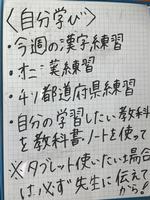 〈自分学び〉
・今週の漢字練習
・オニ゛英練習
・47都道府県練習
・自分の学習したい教科
を教科書、ノートを使って
※タブレット使いたい場合
は必ず先生に伝えて
から!